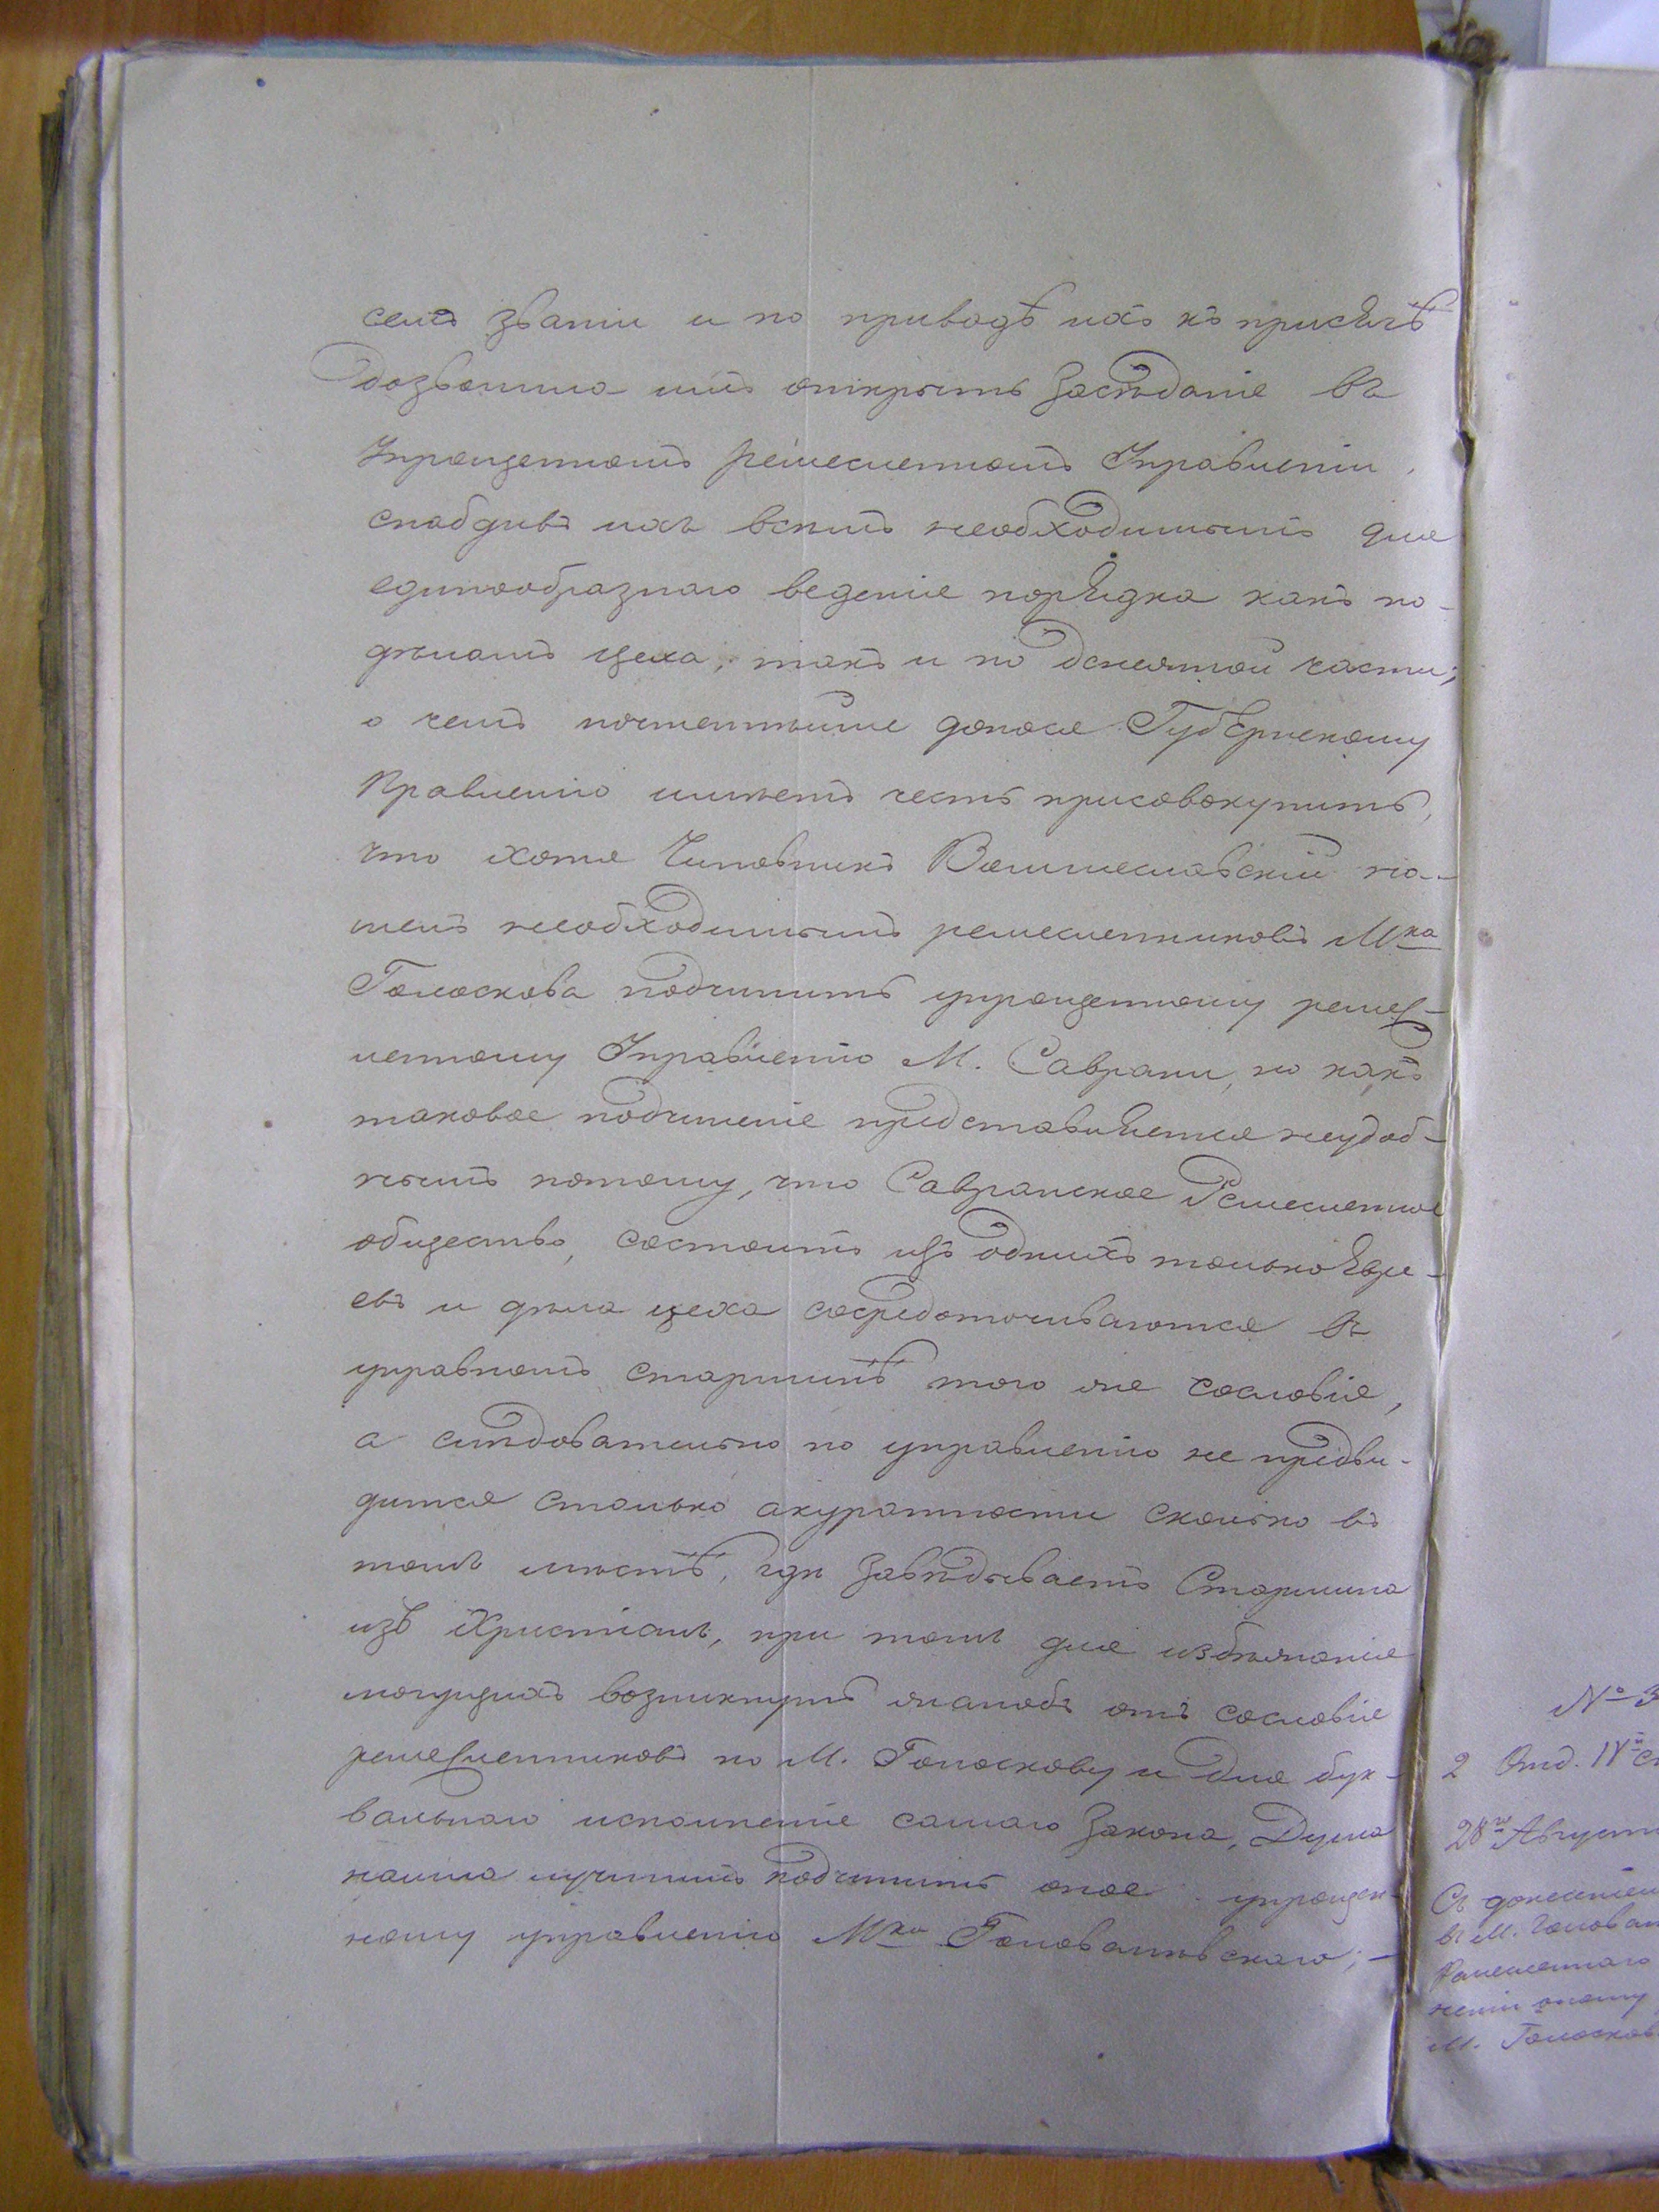 семъ званіи и по приводѣ ихъ къ присягѣ
дозволила имъ открыть Засѣданіе въ
Упрощенномъ ремесленномъ Управленіи,
снабдивъ ихъ всѣмъ необходимымъ для
единообразнаго веденія порядка какъ по
дѣламъ цеха, такъ и по денежной части;
о чемъ почтеннѣйше донося Губернскому
Правленію имѣетъ честь присовокупить,
что хотя Чиновникъ
шелъ необходимымъ ремесленниковъ Мка
Голоскова подчинить упрощенному ремес-
ленному Управленію М. Саврани, но какъ
таковое подчиненіе представляется неудоб-
нымъ потому, что Савранское Ремесленное
общество, состоитъ изъ однихъ только Евре-
евъ и дѣла цеха сосредоточиваются въ
управномъ старшинѣ того же сословія,
а слѣдовательно по управленію не предви-
дится столько акуратности сколько въ
томъ мѣстѣ, гдѣ завѣдываетъ Старшина
изъ Христіанъ, при томъ для избѣжанія
могущихъ возникнуть жалобъ отъ сословія
ремесленниковъ по М. Голоскову и для бук-
вальнаго исполненія самаго Закона, Дума
нашла лучшимъ подчинить оное упрощен-
ному управленію Мка Голованевскаго; —
№ 3
2 Отд. IV й ст
28 го Август
Съ донесеніем
въ М. Голован
Ремесленнаго
неніи оному
М. Голосков